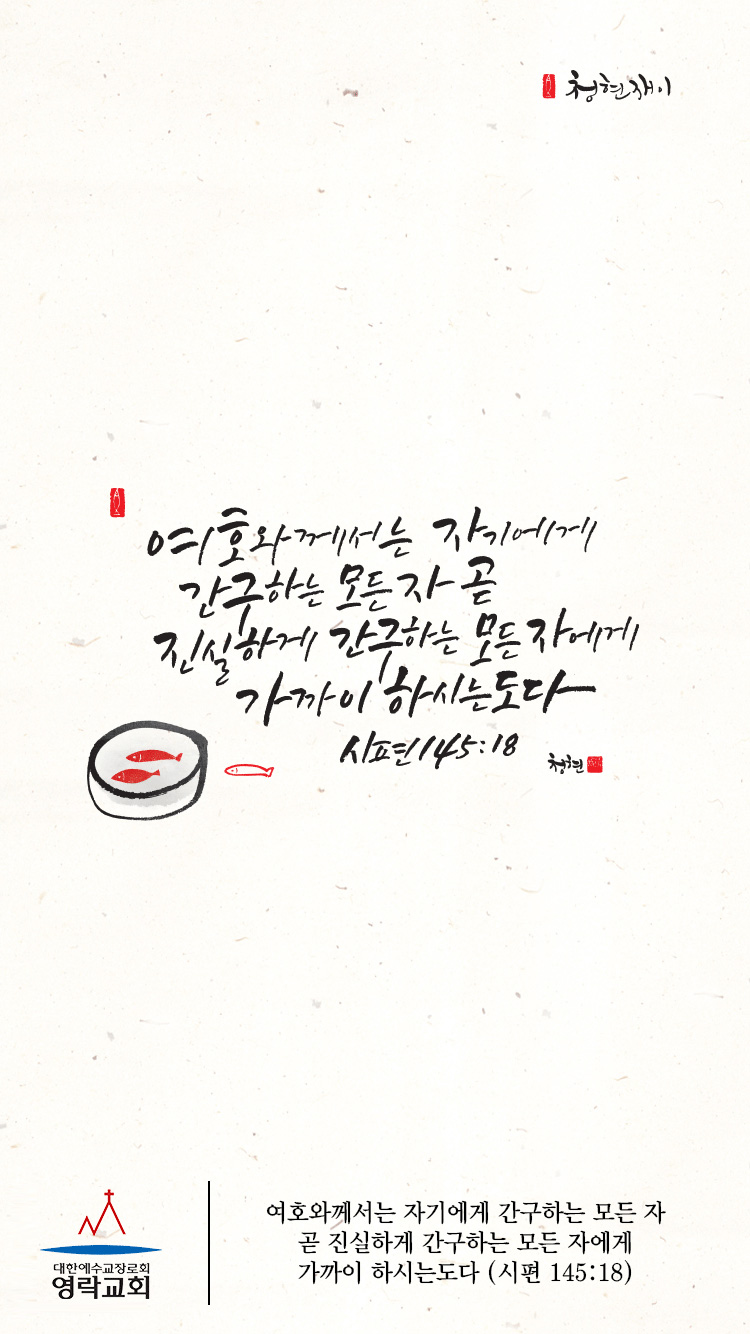 청현재이
여호와께서는 자기에게
간구하는 모든 자 곧
진실하게 간구하는 모든 자에게
가까이 하시는도다
시편 145:18
청현
대한예수교장로회
영락교회
여호와께서는 자기에게 간구하는 모든 자
곧 진실하게 간구하는 모든 자에게
가까이 하시는도다 (시편 145:18)